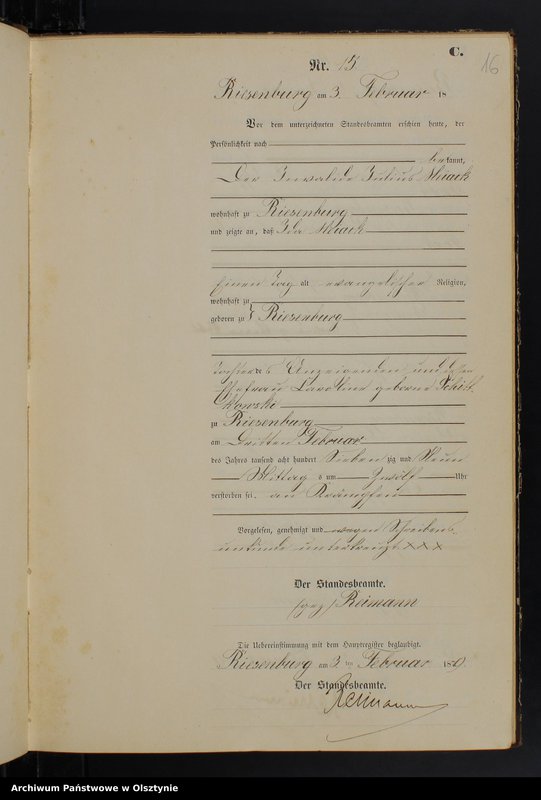 C.
16
Nr. 15
Riesenburg am 3. Februar 18
Vor dem unterzeichneten Standesbeamten erschien heute, der
Persönlichkeit nach
bekannt,
Der Invalide Julius
wohnhaft zu Riesenburg
und zeigte an, daß Ida
Einen Tag alt evangelischer Religion,
wohnhaft zu
geboren zu Riesenburg
Tochter des Anzeigenden und dessen
Ehefrau Caroline geborne
zu Riesenburg
am Dritten Februar
des Jahres tausend acht hundert Sieben zig und Neun
Mittag s um Zwölf Uhr
verstorben sei. an Krämpfen
Vorgelesen, genehmigt und wegen Schreibens
unkunde unterkreuzt XXX
Der Standesbeamte.
(gez) Reimann
Die Uebereinstimmung mit dem Hauptregister beglaubigt.
Riesenburg am 3 ten Februar 1879.
Der Standesbeamte.
Reimann
Archiwum Państwowe w Olsztynie